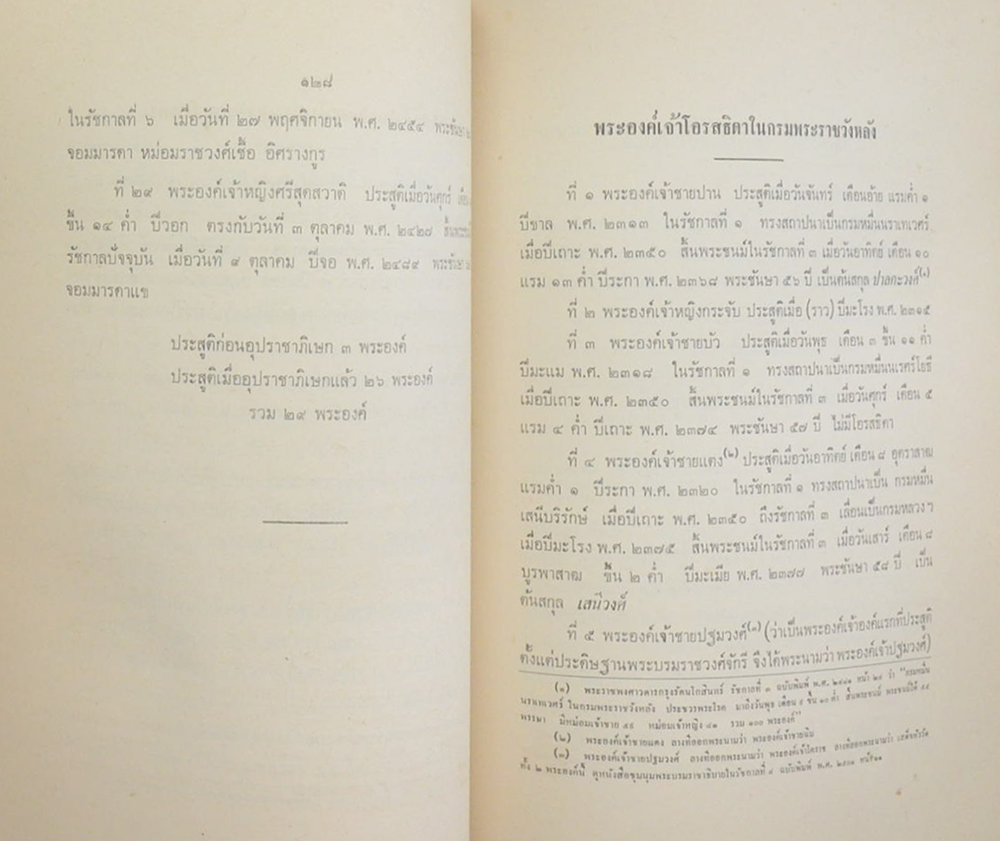 ๑๒๘
ในรัชกาลที่ ๖ เมื่อวันที่ ๒๗ พฤศจิกายน พ.ศ. ๒๔๕๔ พระชันษา
จอมมารดา หม่อมราชวงศ์เชื้อ อิศรางกูร
ที่ ๒๙ พระองค์เจ้าหญิงศรีสุดสวาดิ ประสูติเมื่อวันศุกร์
ขึ้น ๑๔ ค่ำ ปีวอก ตรงกับวันที่ ๓ ตุลาคม พ.ศ. ๒๔๒๗
รัชกาลปัจจุบัน เมื่อวันที่ ๙ ตุลาคม ปีจอ พ.ศ. ๒๔๘๙ พระชันษา
จอมมารดาแข
ประสูติก่อนอุปราชาภิเษก ๓ พระองค์
ประสูติเมื่ออุปราชาภิเษกแล้ว ๒๖ พระองค์
รวม ๒๙ พระองค์
พระองค์เจ้าโอรสธิดาในกรมพระราชวังหลัง
ที่ ๑ พระองค์เจ้าชายปาน ประสูติเมื่อวันจันทร์ เดือนอ้าย แรมค่ำ ๑
ปีขาล พ.ศ. ๒๓๑๓ ในรัชกาลที่ ๑ ทรงสถาปนาเป็นกรมหมื่นนราเทเวศร์
เมื่อปีเถาะ พ.ศ. ๒๓๕๐ สิ้นพระชนม์ในรัชกาลที่ ๓ เมื่อวันอาทิตย์ เดือน ๑๐
แรม ๑๓ ค่ำ ปีระกา พ.ศ. ๒๓๖๘ พระชันษา ๕๖ ปี เป็นต้นสกุล ปาลกะวงศ์(๑)
ที่ ๒ พระองค์เจ้าหญิงกระจับ ประสูติเมื่อ (ราว) ปีมะโรง พ.ศ. ๒๓๑๕
ที่ ๓ พระองค์เจ้าชายบัว ประสูติเมื่อวันพุธ เดือน ๓ ขึ้น ๑๑ ค่ำ
ปีมะแม พ.ศ. ๒๓๑๘ ในรัชกาลที่ ๑ ทรงสถาปนาเป็นกรมหมื่นนเรศร์โยธี
เมื่อปีเถาะ พ.ศ. ๒๓๕๐ สิ้นพระชนม์ในรัชกาลที่ ๓ เมื่อวันศุกร์ เดือน ๕
แรม ๔ ค่ำ ปีเถาะ พ.ศ. ๒๓๗๔ พระชันษา ๕๗ ปี ไม่มีโอรสธิดา
ที่ ๔ พระองค์เจ้าชายแตง(๒) ประสูติเมื่อวันอาทิตย์ เดือน ๘ อุตราสาฒ
แรมค่ำ ๑ ปีระกา พ.ศ. ๒๓๒๐ ในรัชกาลที่ ๑ ทรงสถาปนาเป็น กรมหมื่น
เสนีบริรักษ์ เมื่อปีเถาะ พ.ศ. ๒๓๕๐ ถึงรัชกาลที่ ๓ เลื่อนเป็นกรมหลวง ฯ
เมื่อปีมะโรง พ.ศ. ๒๓๗๕ สิ้นพระชนม์ในรัชกาลที่ ๓ เมื่อวันเสาร์ เดือน ๘
บูรพาสาฒ ขึ้น ๒ ค่ำ ปีมะเมีย พ.ศ. ๒๓๗๗ พระชันษา ๕๘ ปี เป็น
ต้นสกุล เสนีวงศ์
ที่ ๕ พระองค์เจ้าชายปฐมวงศ์(๓) (ว่าเป็นพระองค์เจ้าองค์แรกที่ประสูติ
ตั้งแต่ประดิษฐานพระบรมราชวงศ์จักรี จึงได้พระนามว่า พระองค์เจ้าปฐมวงศ์)
(๑) พระราชพงศาวดารกรุงรัตนโกสินทร์ รัชกาลที่ ๓ ฉบับพิมพ์ พ.ศ. หน้า ว่า "กรมหมื่น
นราเทเวศร์ ในกรมพระราชวังหลัง ประชวรพระโรค มาถึงวันพุธ เดือน ๙ ขึ้น ๑๐ ค่ำ สิ้นพระชนม์ พระชนม์ได้
พรรษา มีหม่อมเจ้าชาย ๕๙ หม่อมเจ้าหญิง ๔๑ รวม ๑๐๐ พระองค์"
(๒) พระองค์เจ้าชายแตง ลางทีออกพระนามว่า พระองค์เจ้าชาย
(๓) พระองค์เจ้าชายปฐมวงศ์ ลางทีออกพระนามว่า พระองค์เจ้า ลางทีออกพระนามว่า
ทั้ง ๒ พระองค์นี้ ดูหนังสือชุมนุมพระบรมราชาธิบายในรัชกาลที่ ๔ ฉบับพิมพ์ พ.ศ.